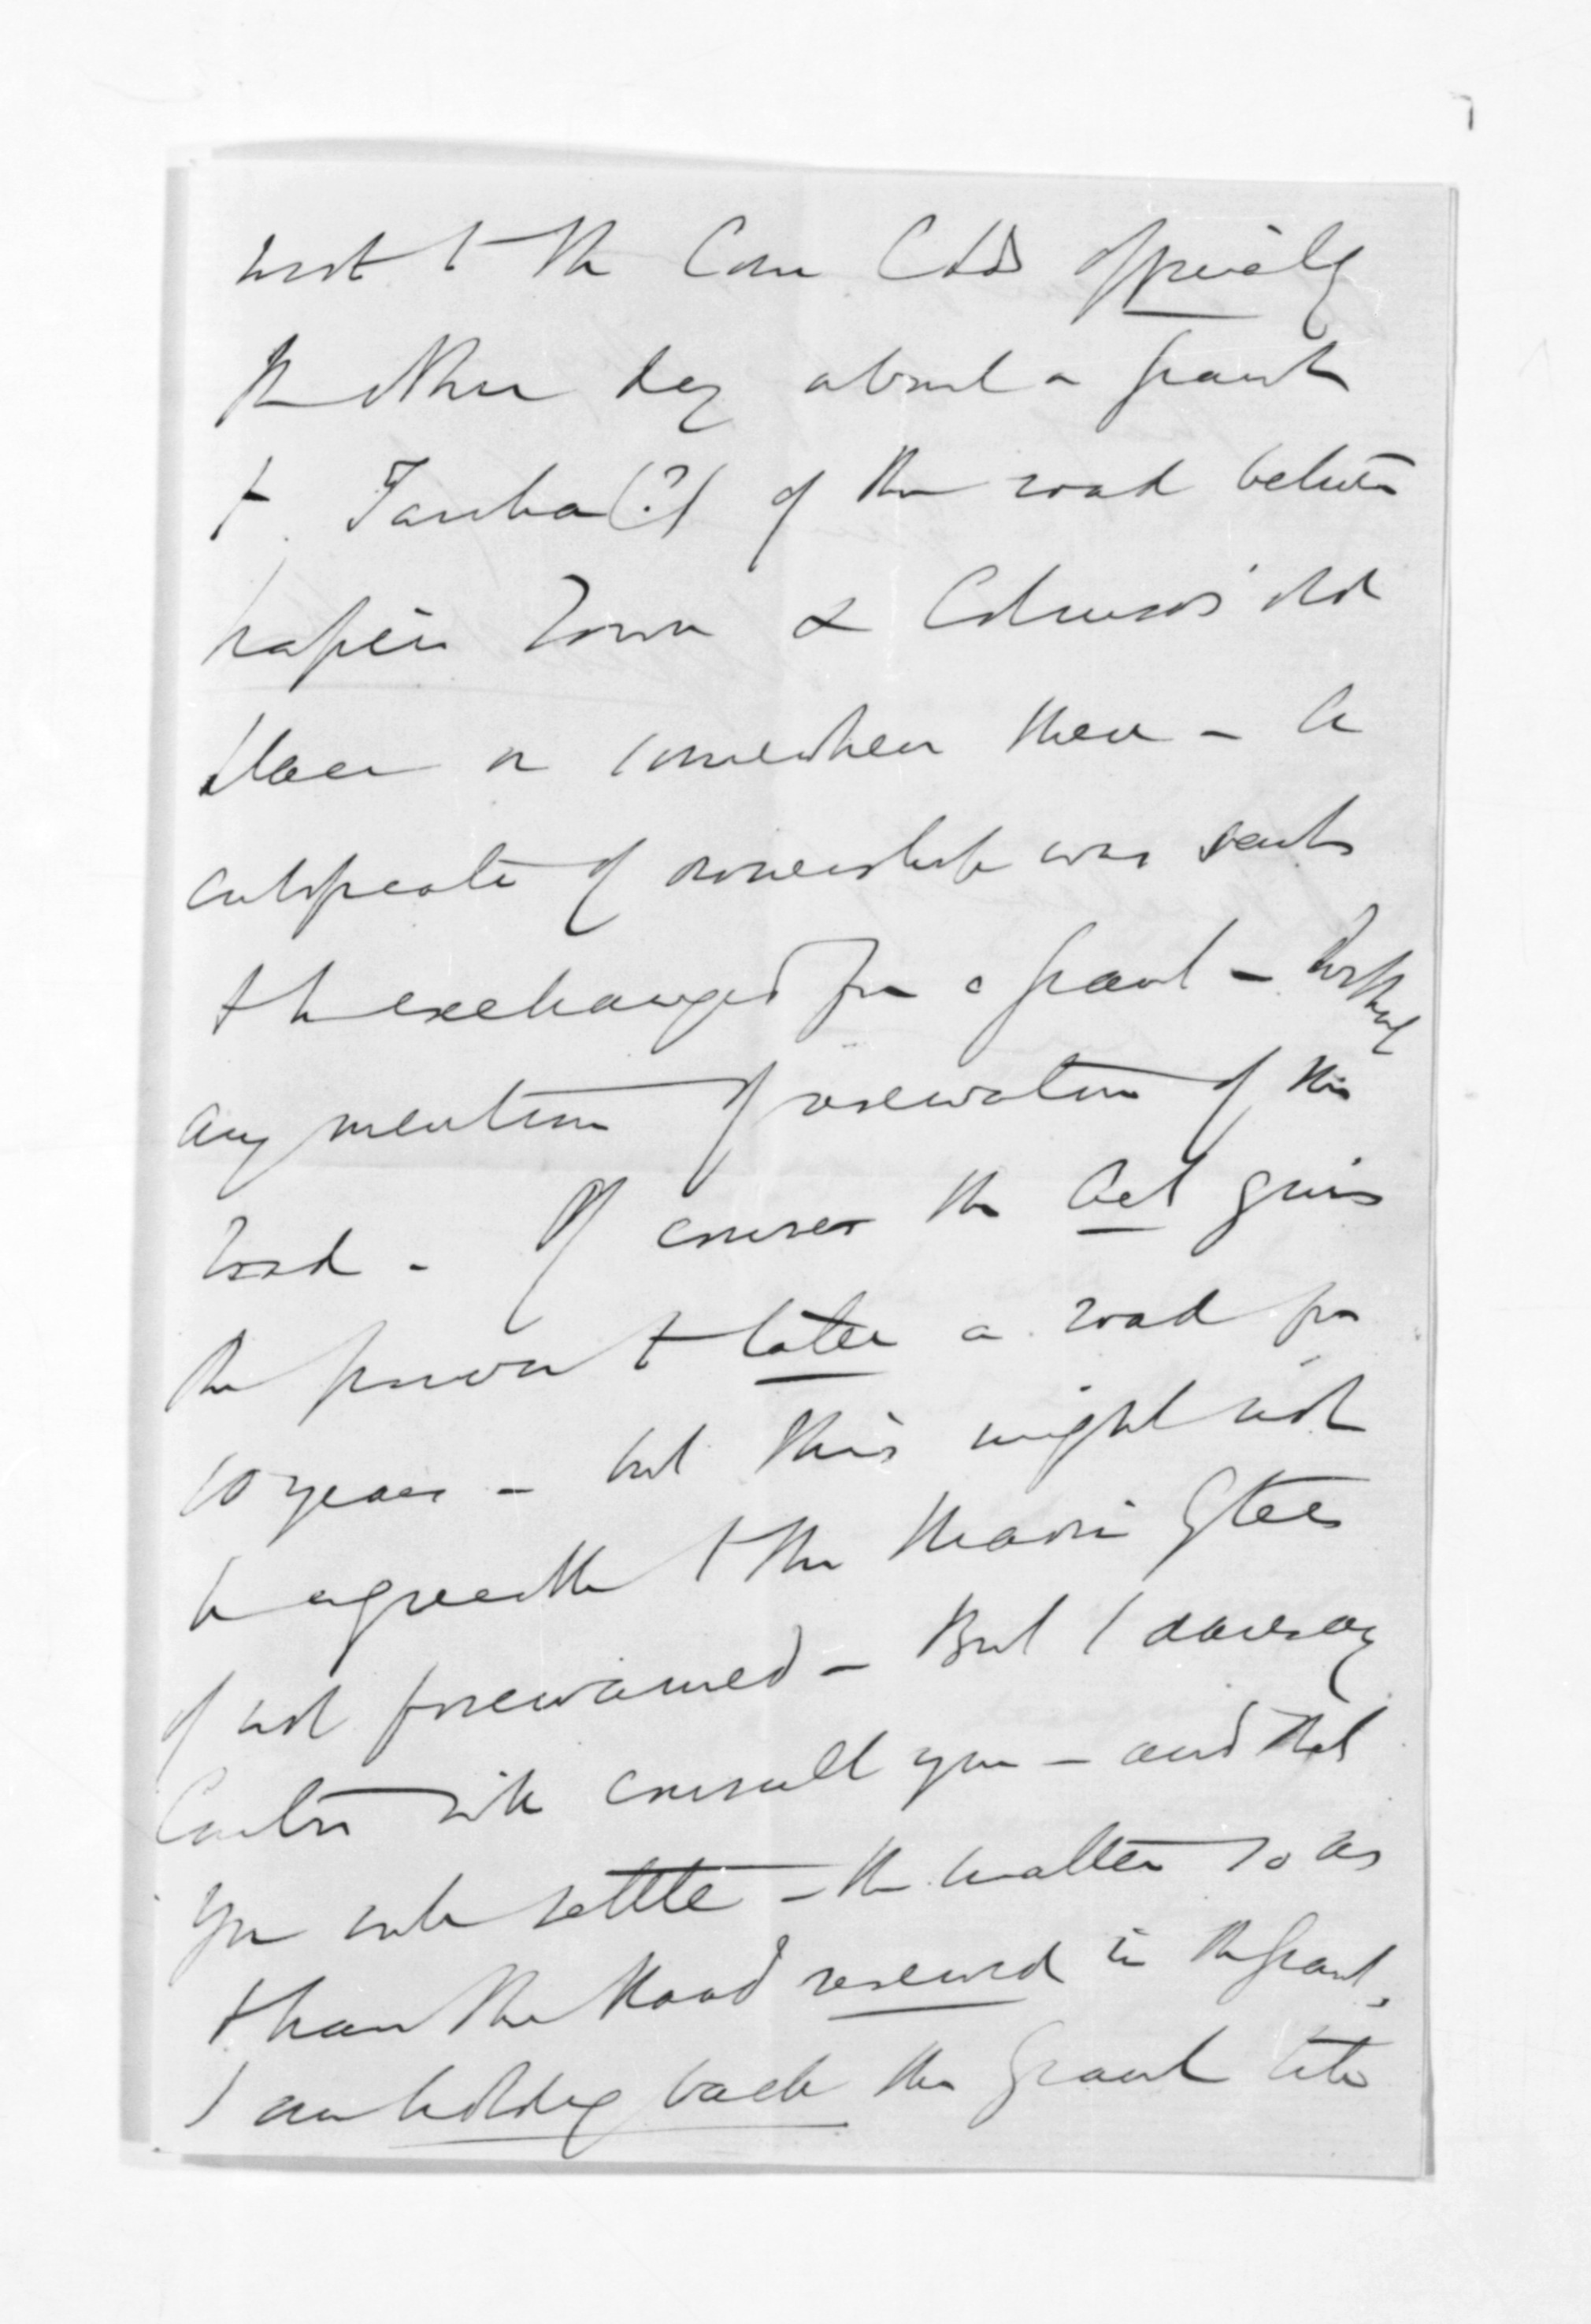 wrote to the Com officially
the other day about a grant
to Tareha (?) of the road between
Napier Town & Colenso's old
place or somewhere there - A
certificate of ownership was sent
to be exchanged for a grant - without
any mention of reservation of this
Road - Of course the Act gives
the power to take a road for
10 years - but this might not
be agreeable to the Maori Gtees
if not forewarned - But I daresay
will consult you - and that
you will settle - the matter so as
to have the Road reserved in the grant.
I am holding back the Grant till